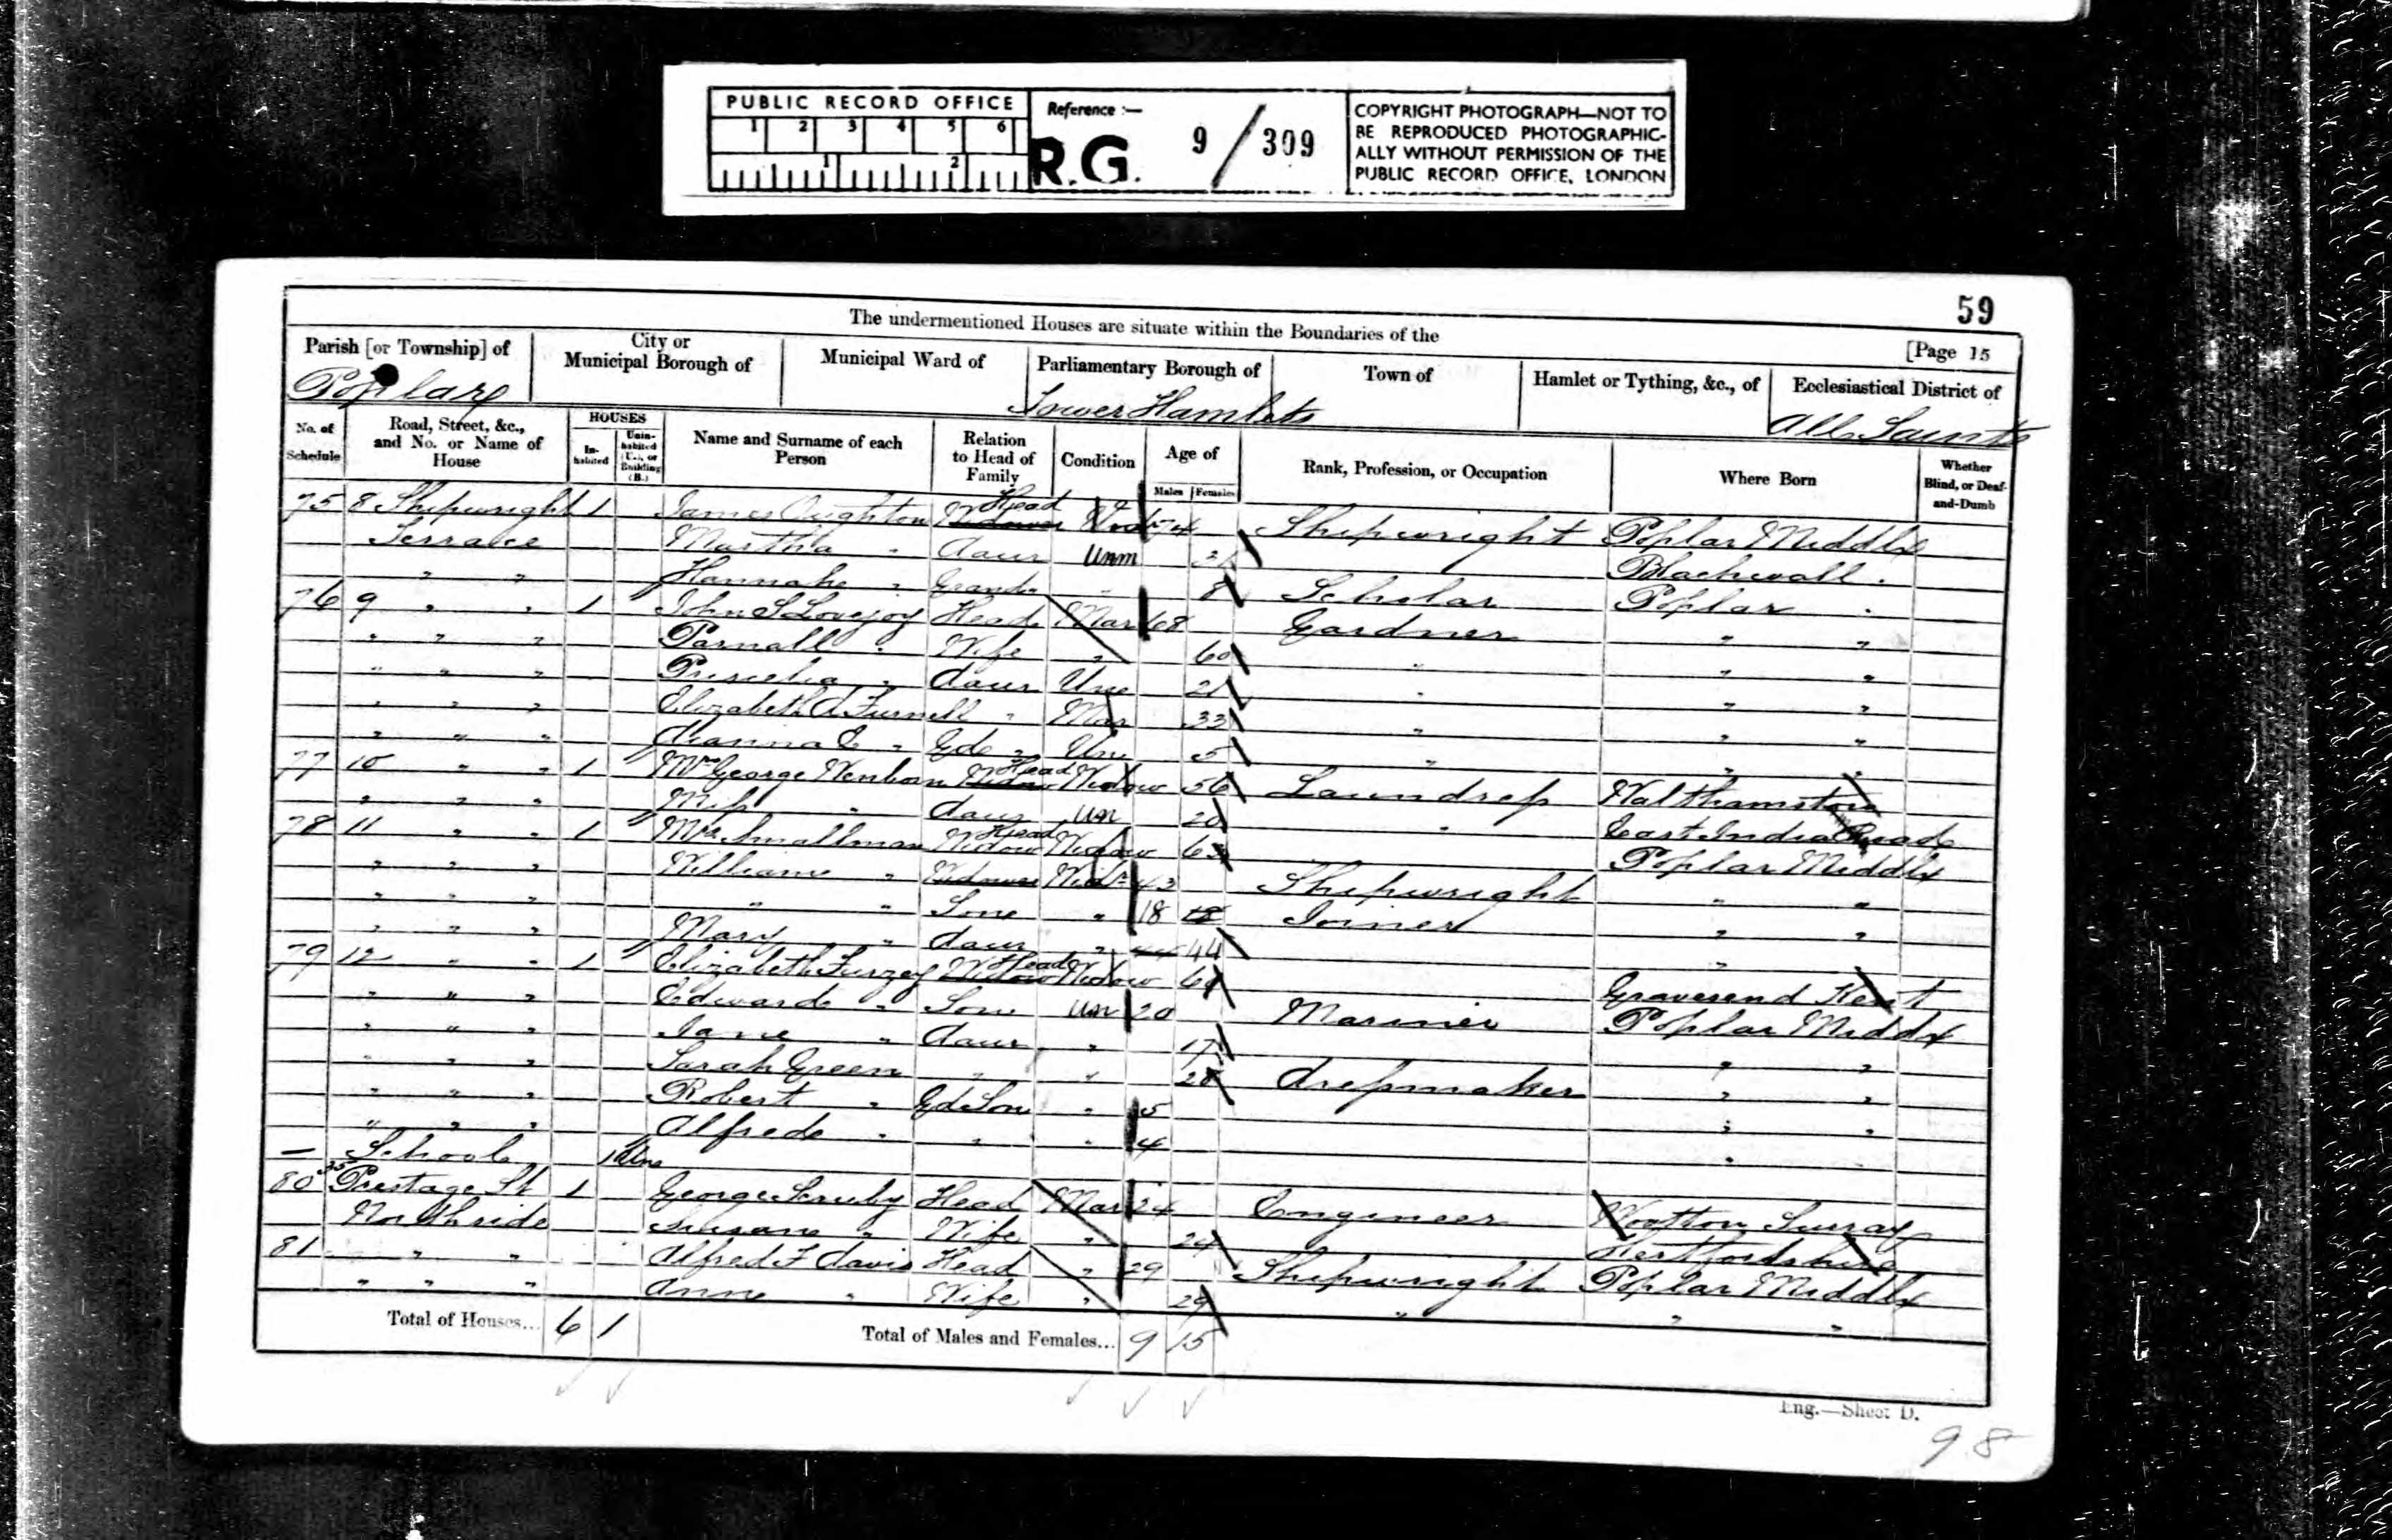 PUBLIC RECORD OFFICE
1 2 3 4 5 6
1 2
Reference :—
R.G. 9/309
COPYRIGHT PHOTOGRAPH—NOT TO
BE REPRODUCED PHOTOGRAPHIC-
ALLY WITHOUT PERMISSION OF THE
PUBLIC RECORD OFFICE, LONDON
59
The undermentioned Houses are situate within the Boundaries of the
[Page 15
Parish [or Township] of City or Municipal Borough of Municipal Ward of Parliamentary Borough of Town of Hamlet or Tything, &c., of Ecclesiastical District of
Poplar Tower Hamlets All Saints
No. of Schedule Road, Street, &c., and No. or Name of House HOUSES In-habited Unin-habited (U.), or Building (B.) Name and Surname of each Person Relation to Head of Family Condition Age of Males Females Rank, Profession, or Occupation Where Born Whether Blind, or Deaf-and-Dumb
75 8 Shipwright 1 James Oughton Head 74 Shipwright Poplar Middlx
Terrace Martha " daur Unm Blackwall "
" " Hannah " 8 Scholar Poplar "
76 9 " " 1 John S Lovejoy Head Mar 68 Gardner " "
" " " Parnall " Wife " 60 " " "
" " " Priscilla " daur Un 21 " " "
" " " Elizabeth A Furnell " Mar 33 " " "
" " " C " Gd " Un 5 " " "
77 10 " " 1 Mrs George Wenborn Head Widow 56 Laundress Walthamstow
" " " Miss " daur Un 20 " East India Road
78 11 " " 1 Mrs Smallman Widow Head Widow Poplar Middlx
" " " William " Widr 43 Shipwright " "
" " " " " Son " 18 Joiner " "
" " " Mary " daur " 44 "
79 12 " " 1 Elizabeth Furzey Head Widow Gravesend Kent
" " " Edward " Son Un 20 Mariner Poplar Middlx
" " " Jane " daur " 17 " "
" " " Sarah Green " " 28 dressmaker " "
" " " Robert " Gd Son " 5 " "
" " " Alfred " " " 4 "
— School 1 Un
80 35 Prestage St 1 George Scruby Head Mar 24 Engineer Wootton Surray
North side Susan " Wife " 24 Hertfordshire
81 " " Alfred F davis Head " 29 Shipwright Poplar Middlx
" " " Anne " Wife " 29 " " "
Total of Houses... 6 1 Total of Males and Females... 9 15
Eng.—Sheet D.
98